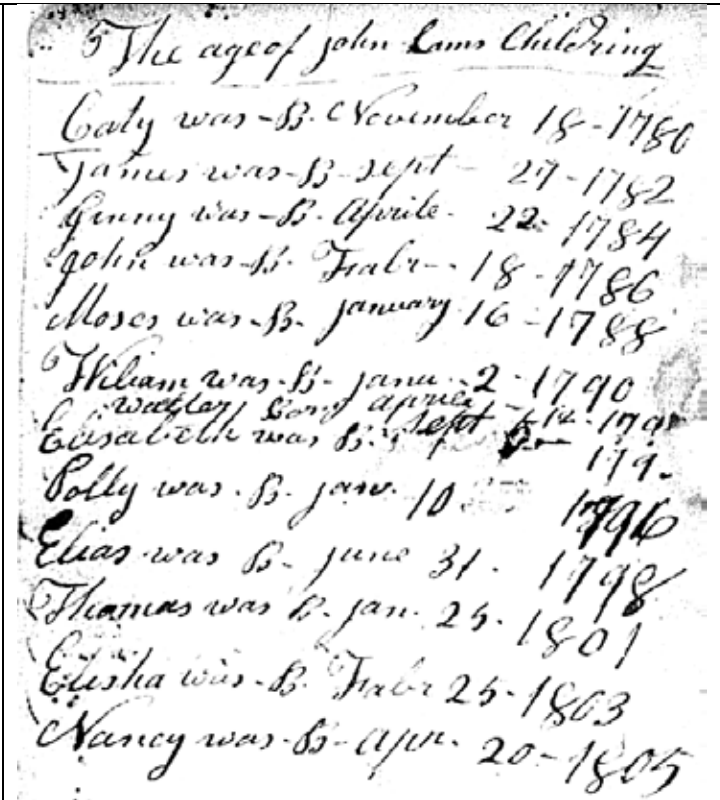 The age of john Lams Childring
Caty was - B. November 18 - 1780
James was - B - Sept - 27 - 1782
Jinny was - B. Aprile - 22 - 1784
john was - B. Frabr - 18 - 1786
Moses was - B. january 16 - 1788
Wiliam was - B - janu - 2 - 1790
walter Born april
Elisabeth was B. Sept
Polly was - B. jaw. 10 1796
Elias was B - june 31 - 1798
Thomas was B - jan. 25 - 1801
Elisha was - B. Frabr 25 - 1803
Nancy was - B - Apr. 20 - 1805